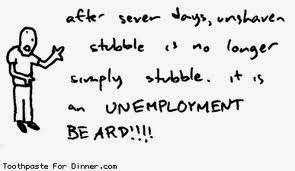 after seven days, unshaven
stubble is no longer
simply stubble. it is
an UNEMPLOYMENT
BEARD!!!!
Toothpaste For Dinner.com